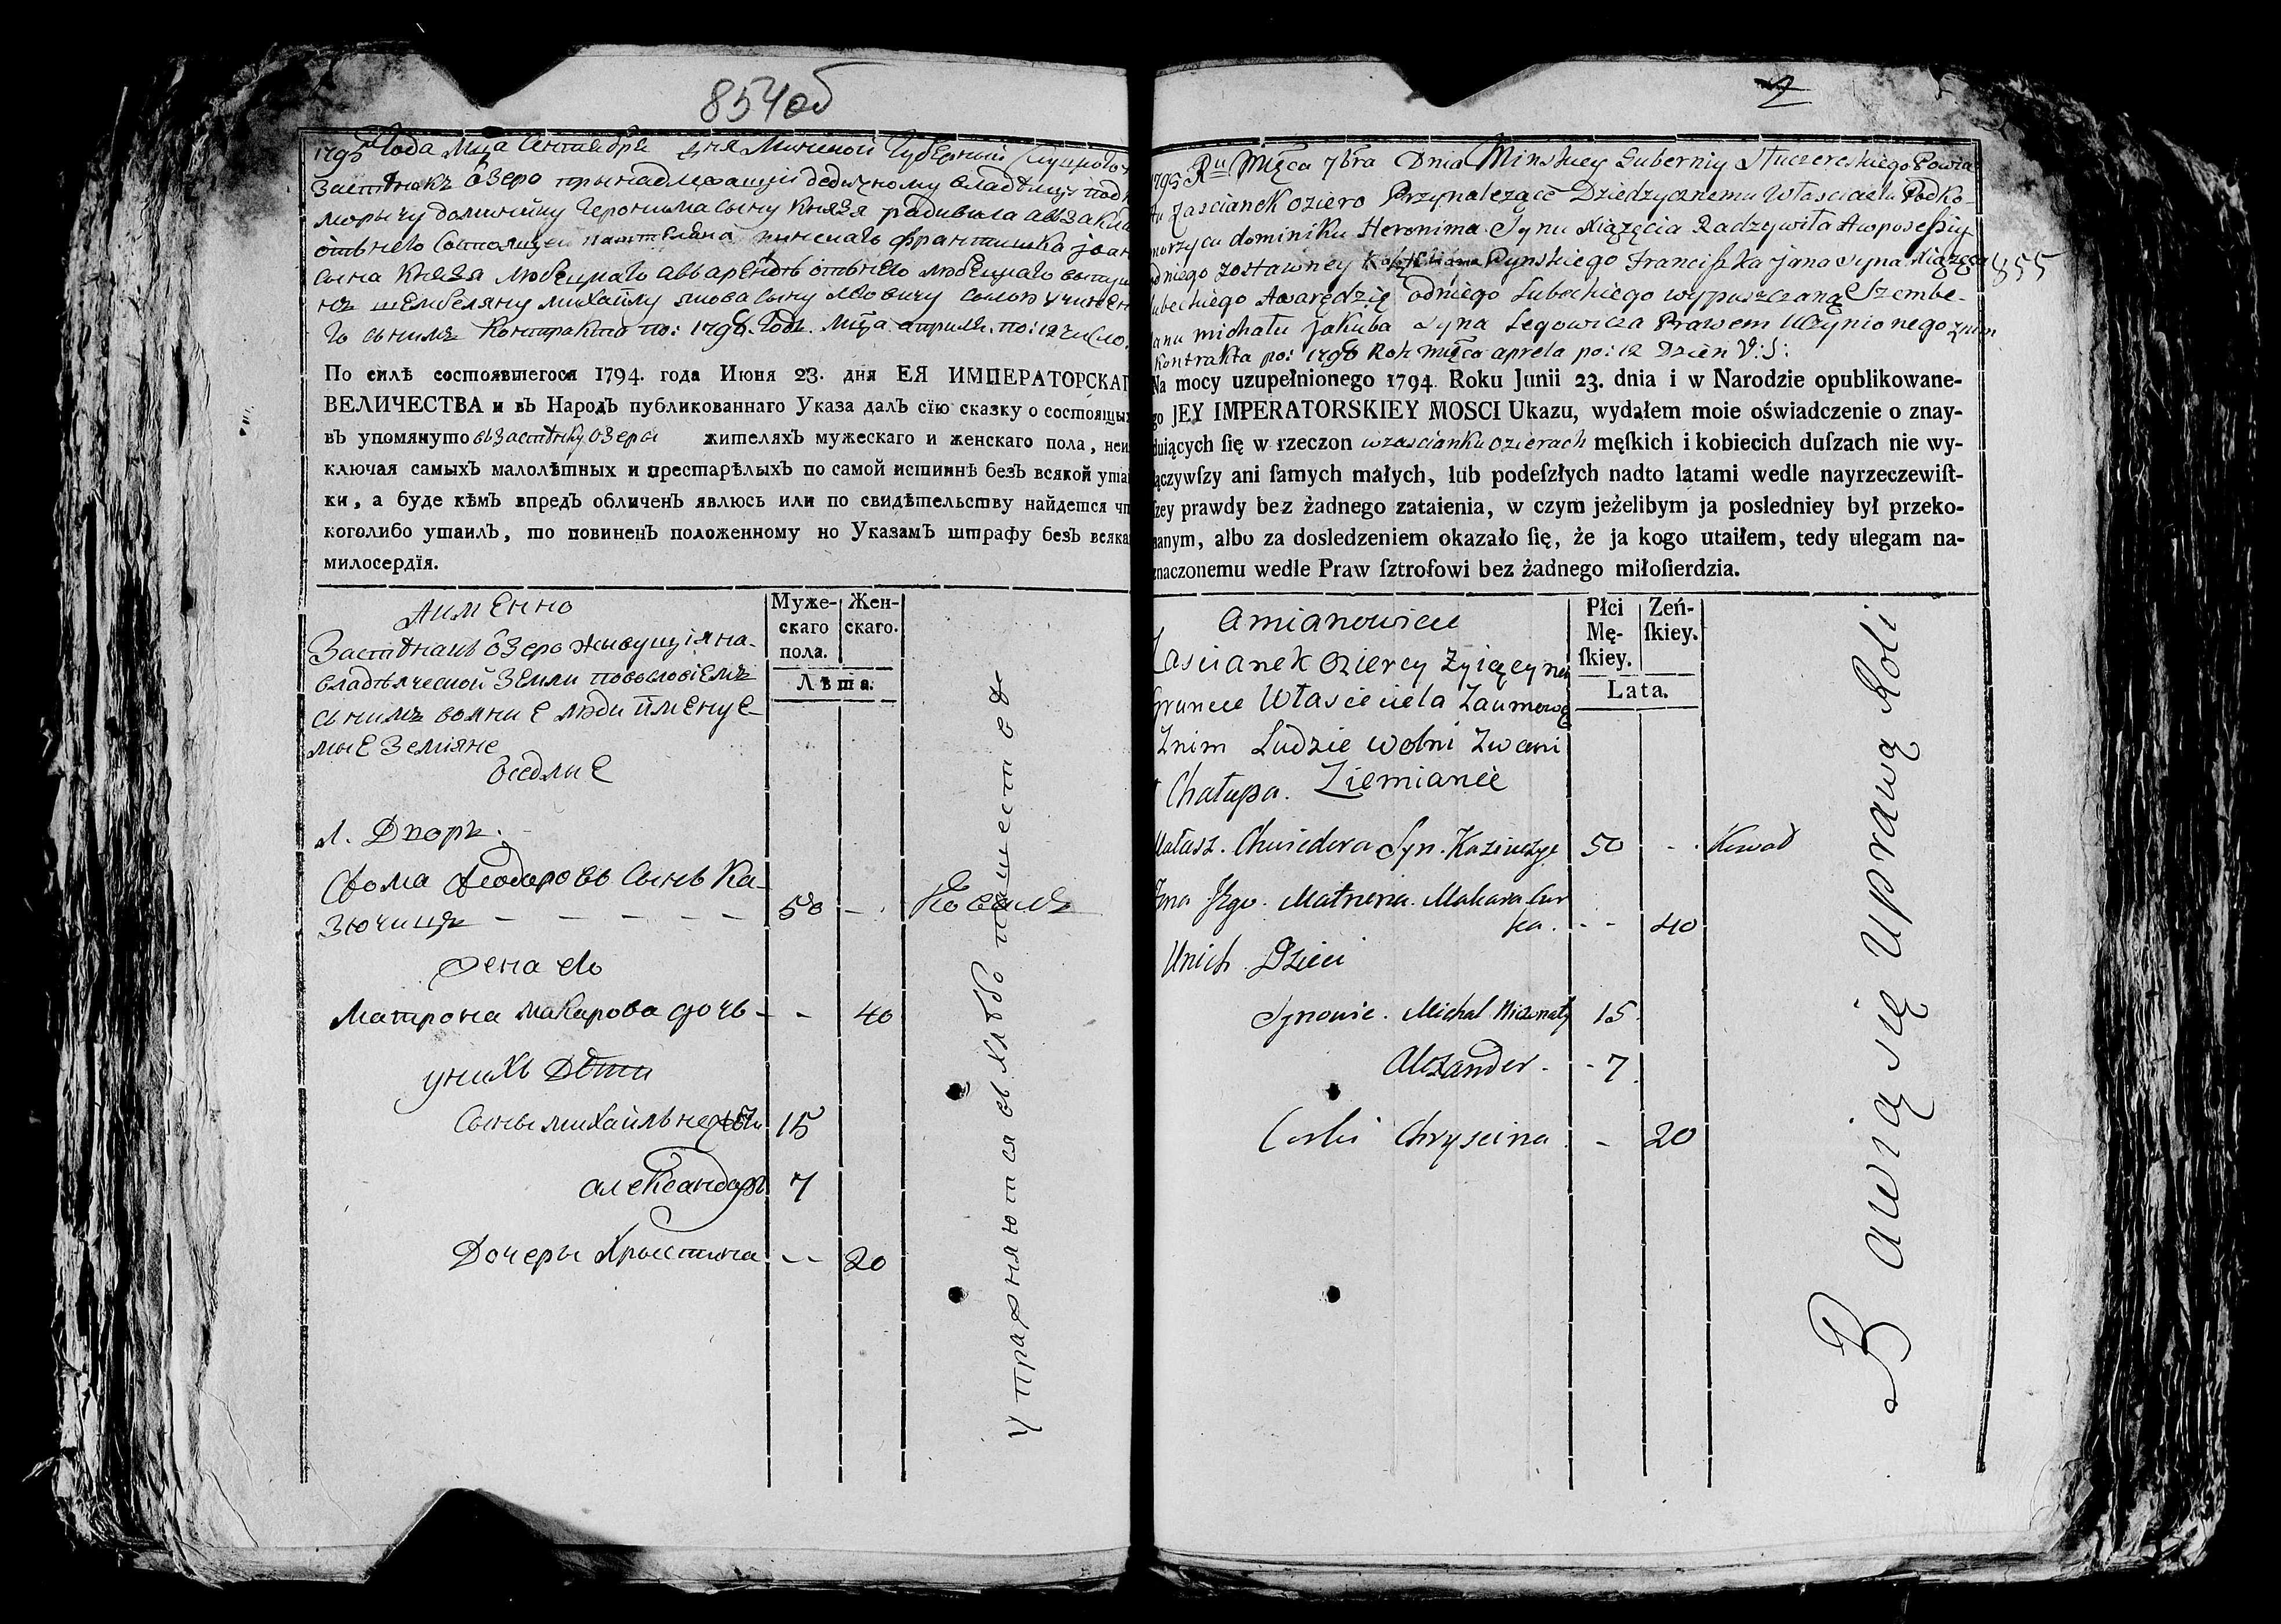 854об
1795 Года Мца Сентября дня Минской Губернии Слуцкого
Застѣнакъ Озеро принадлежащуй дедычному владѣлцу подк
морычу доминику Геронима сыну Князя радивила авъ закла
отъ него Состоящей пинскаго францишка
сына Князя любецкаго авъ арендѣ отъ него любецкаго
шембеляну михайлу якова сыну
съ нимъ Контракта по: 1798 Годъ. Мца априля. по: 12 число.
По силѣ состоявшегося 1794. года Июня 23. дня ЕЯ ИМПЕРАТОРСКАГ
ВЕЛИЧЕСТВА и въ Народъ публикованнаго Указа далъ сїю сказку о состоящих
въ упомянуто въ Застѣнку Озеры жителяхъ мужескаго и женскаго пола, неи
ключая самыхъ малолѣтныхъ и престарѣлыхъ по самой истиннѣ безъ всякой ута
ки, а буде кѣмъ впредь обличенъ явлюсь или по свидѣтельству найдется чт
коголибо утаилъ, то повиненъ положенному по Указамъ штрафу безъ всяка
милосердїя.
Аименно
Муже- Жен-
скаго скаго.
пола.
Лѣта.
Застѣнакъ Озеро живущія на-
владѣлческой Земли
съ нимъ волние люди имЕнуЕ-
мыЕ Земiяне
ОседлиЕ
1. Дворъ.
Фома Феодоровъ Сынъ Ка-
зючицъ 50 - Коваль
Жена его
Матрона Макарова дочь - - 40
унихъ Дѣти
Сыны михайлъ 15
александръ 7
Дочеры Христина - - 20
упражняются въ хлѣбопашестве
2
1795 Ru Mięca 7bra Dnia Minskiey Guberniy Powia
tu Zascianek oziero Przynalezące Dziedzycznemu Własciciela Podko-
morzycu dominiku Heronima Synu Xiązęcia Radzywiła
odniego zostawney Pynskiego Franciszka Jana syna Xiązęcia 855
Lubeckiego Awarędzię odniego Lubeckiego wypuszczaną Szembe-
lanu michału Jakuba syna Legowicza Prawem Uczynionego znim
kontrakta po: 1798 Rok mięca aprela po: 12 Dzien V: S:
Na mocy uzupełnionego 1794. Roku Junii 23. dnia i w Narodzie opublikowane-
go JEY IMPERATORSKIEY MOSCI Ukazu, wydałem moie oświadczenie o znay-
duiących ſię w rzeczon wzascianku ozierach męſkich i kobiecich duſzach nie wy-
łączywſzy ani ſamych małych, lub podeſzłych nadto latami wedle nayrzeczewiſt-
ſzey prawdy bez żadnego zataienia, w czym jeżelibym ja posledniey był przeko-
nanym, albo za dosledzeniem okazało ſię, że ja kogo utaiłem, tedy ulegam na-
znaczonemu wedle Praw ſztrofowi bez żadnego miłoſierdzia.
Amianowicie
Płci Zeń-
Mę- ſkiey.
ſkiey.
Lata.
Zascianek Ozierey Zyiącyna
Gruncie Własciciela Zaumową
Znim Ludzie wolni Zwani
Ziemianie
1 Chałupa.
Chwiedora Syn. Kaziuczyc 50 - - Kowal
Matruna. Makara Cur
ka. - - 40
Unich Dzieci
Synowie. Michał Niezonaty 15
Alexander. - 7.
Corki Chryscina - 20
Bawią się Uprawą Roli